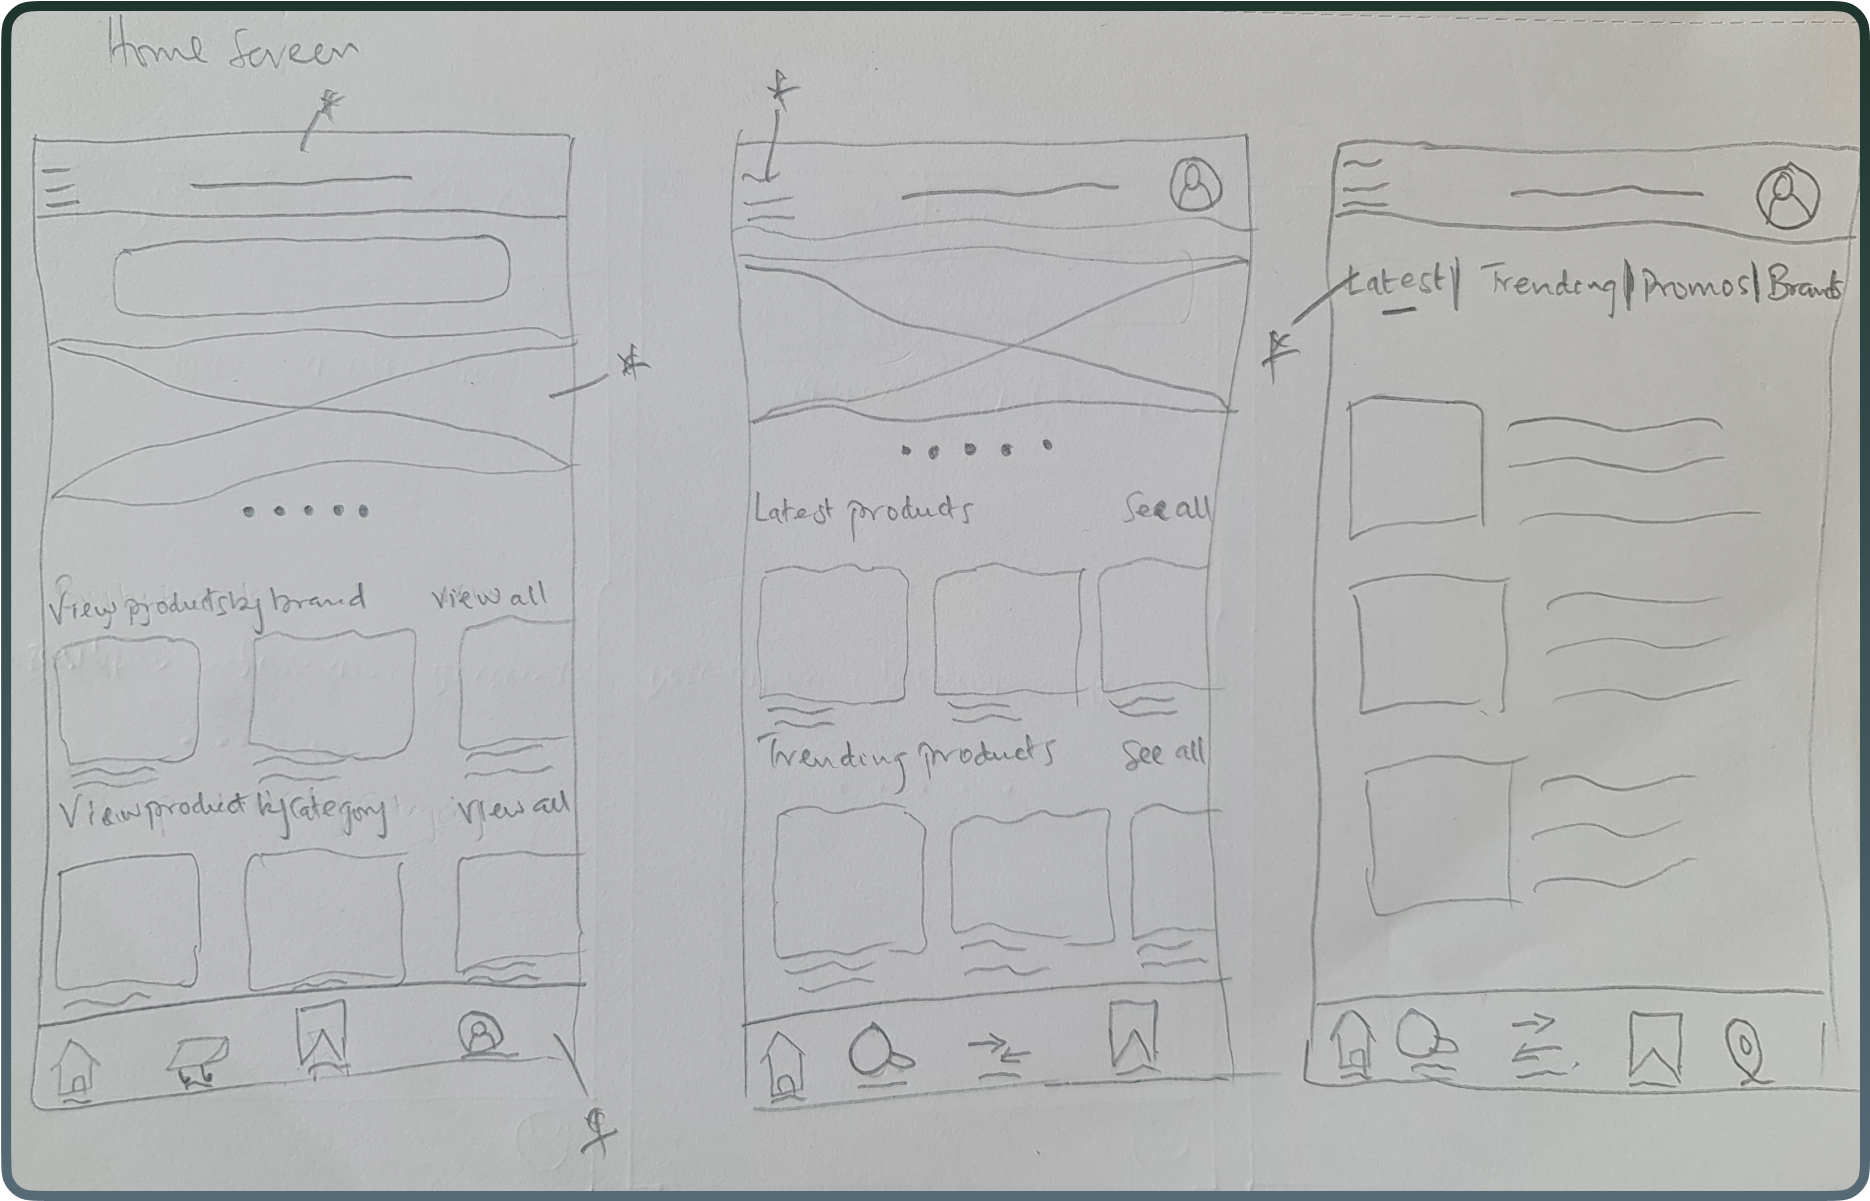 Home Screen
View products by brand View all
View product by Category View all
Latest products See all
Trending products See all
Latest | Trending | Promos | Brands